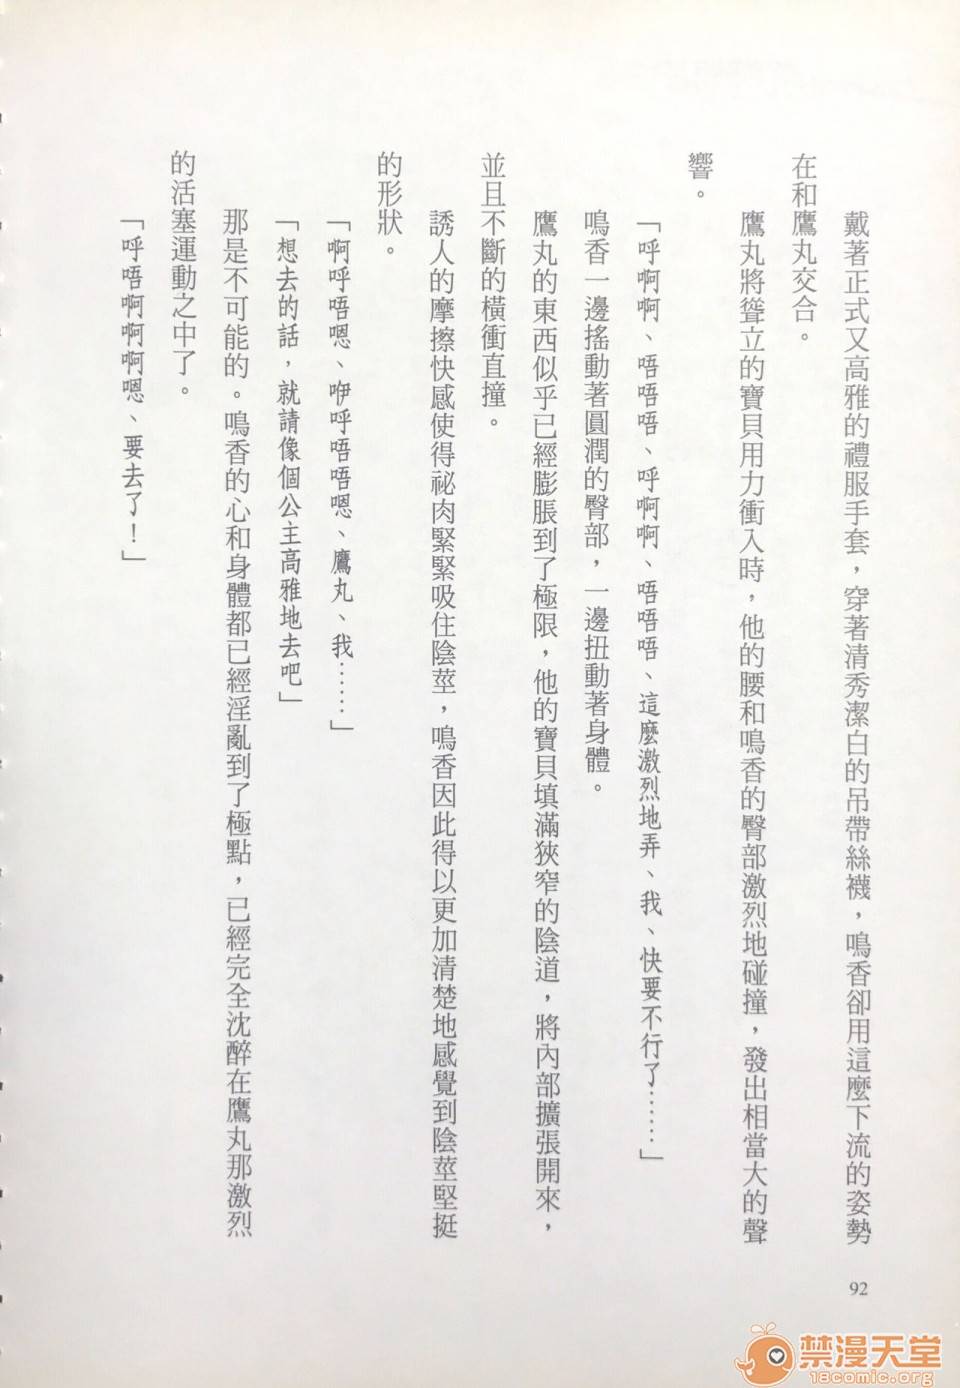 戴著正式又高雅的禮服手套，穿著清秀潔白的吊帶絲襪，鳴香卻用這麼下流的姿勢
在和鷹丸交合。
鷹丸將聳立的寶貝用力衝入時，他的腰和鳴香的臀部激烈地碰撞，發出相當大的聲
響。
「呼啊啊、唔唔唔、呼啊啊、唔唔唔、這麼激烈地弄、我、快要不行了……」
鳴香一邊搖動著圓潤的臀部，一邊扭動著身體。
鷹丸的東西似乎已經膨脹到了極限，他的寶貝填滿狹窄的陰道，將內部擴張開來，
並且不斷的橫衝直撞。
誘人的摩擦快感使得祕肉緊緊吸住陰莖，鳴香因此得以更加清楚地感覺到陰莖堅挺
的形狀。
「啊呼唔嗯、咿呼唔唔嗯、鷹丸、我……」
「想去的話，就請像個公主高雅地去吧」
那是不可能的。鳴香的心和身體都已經淫亂到了極點，已經完全沈醉在鷹丸那激烈
的活塞運動之中了。
「呼唔啊啊啊嗯、要去了！」
92
禁漫天堂
18comic.org